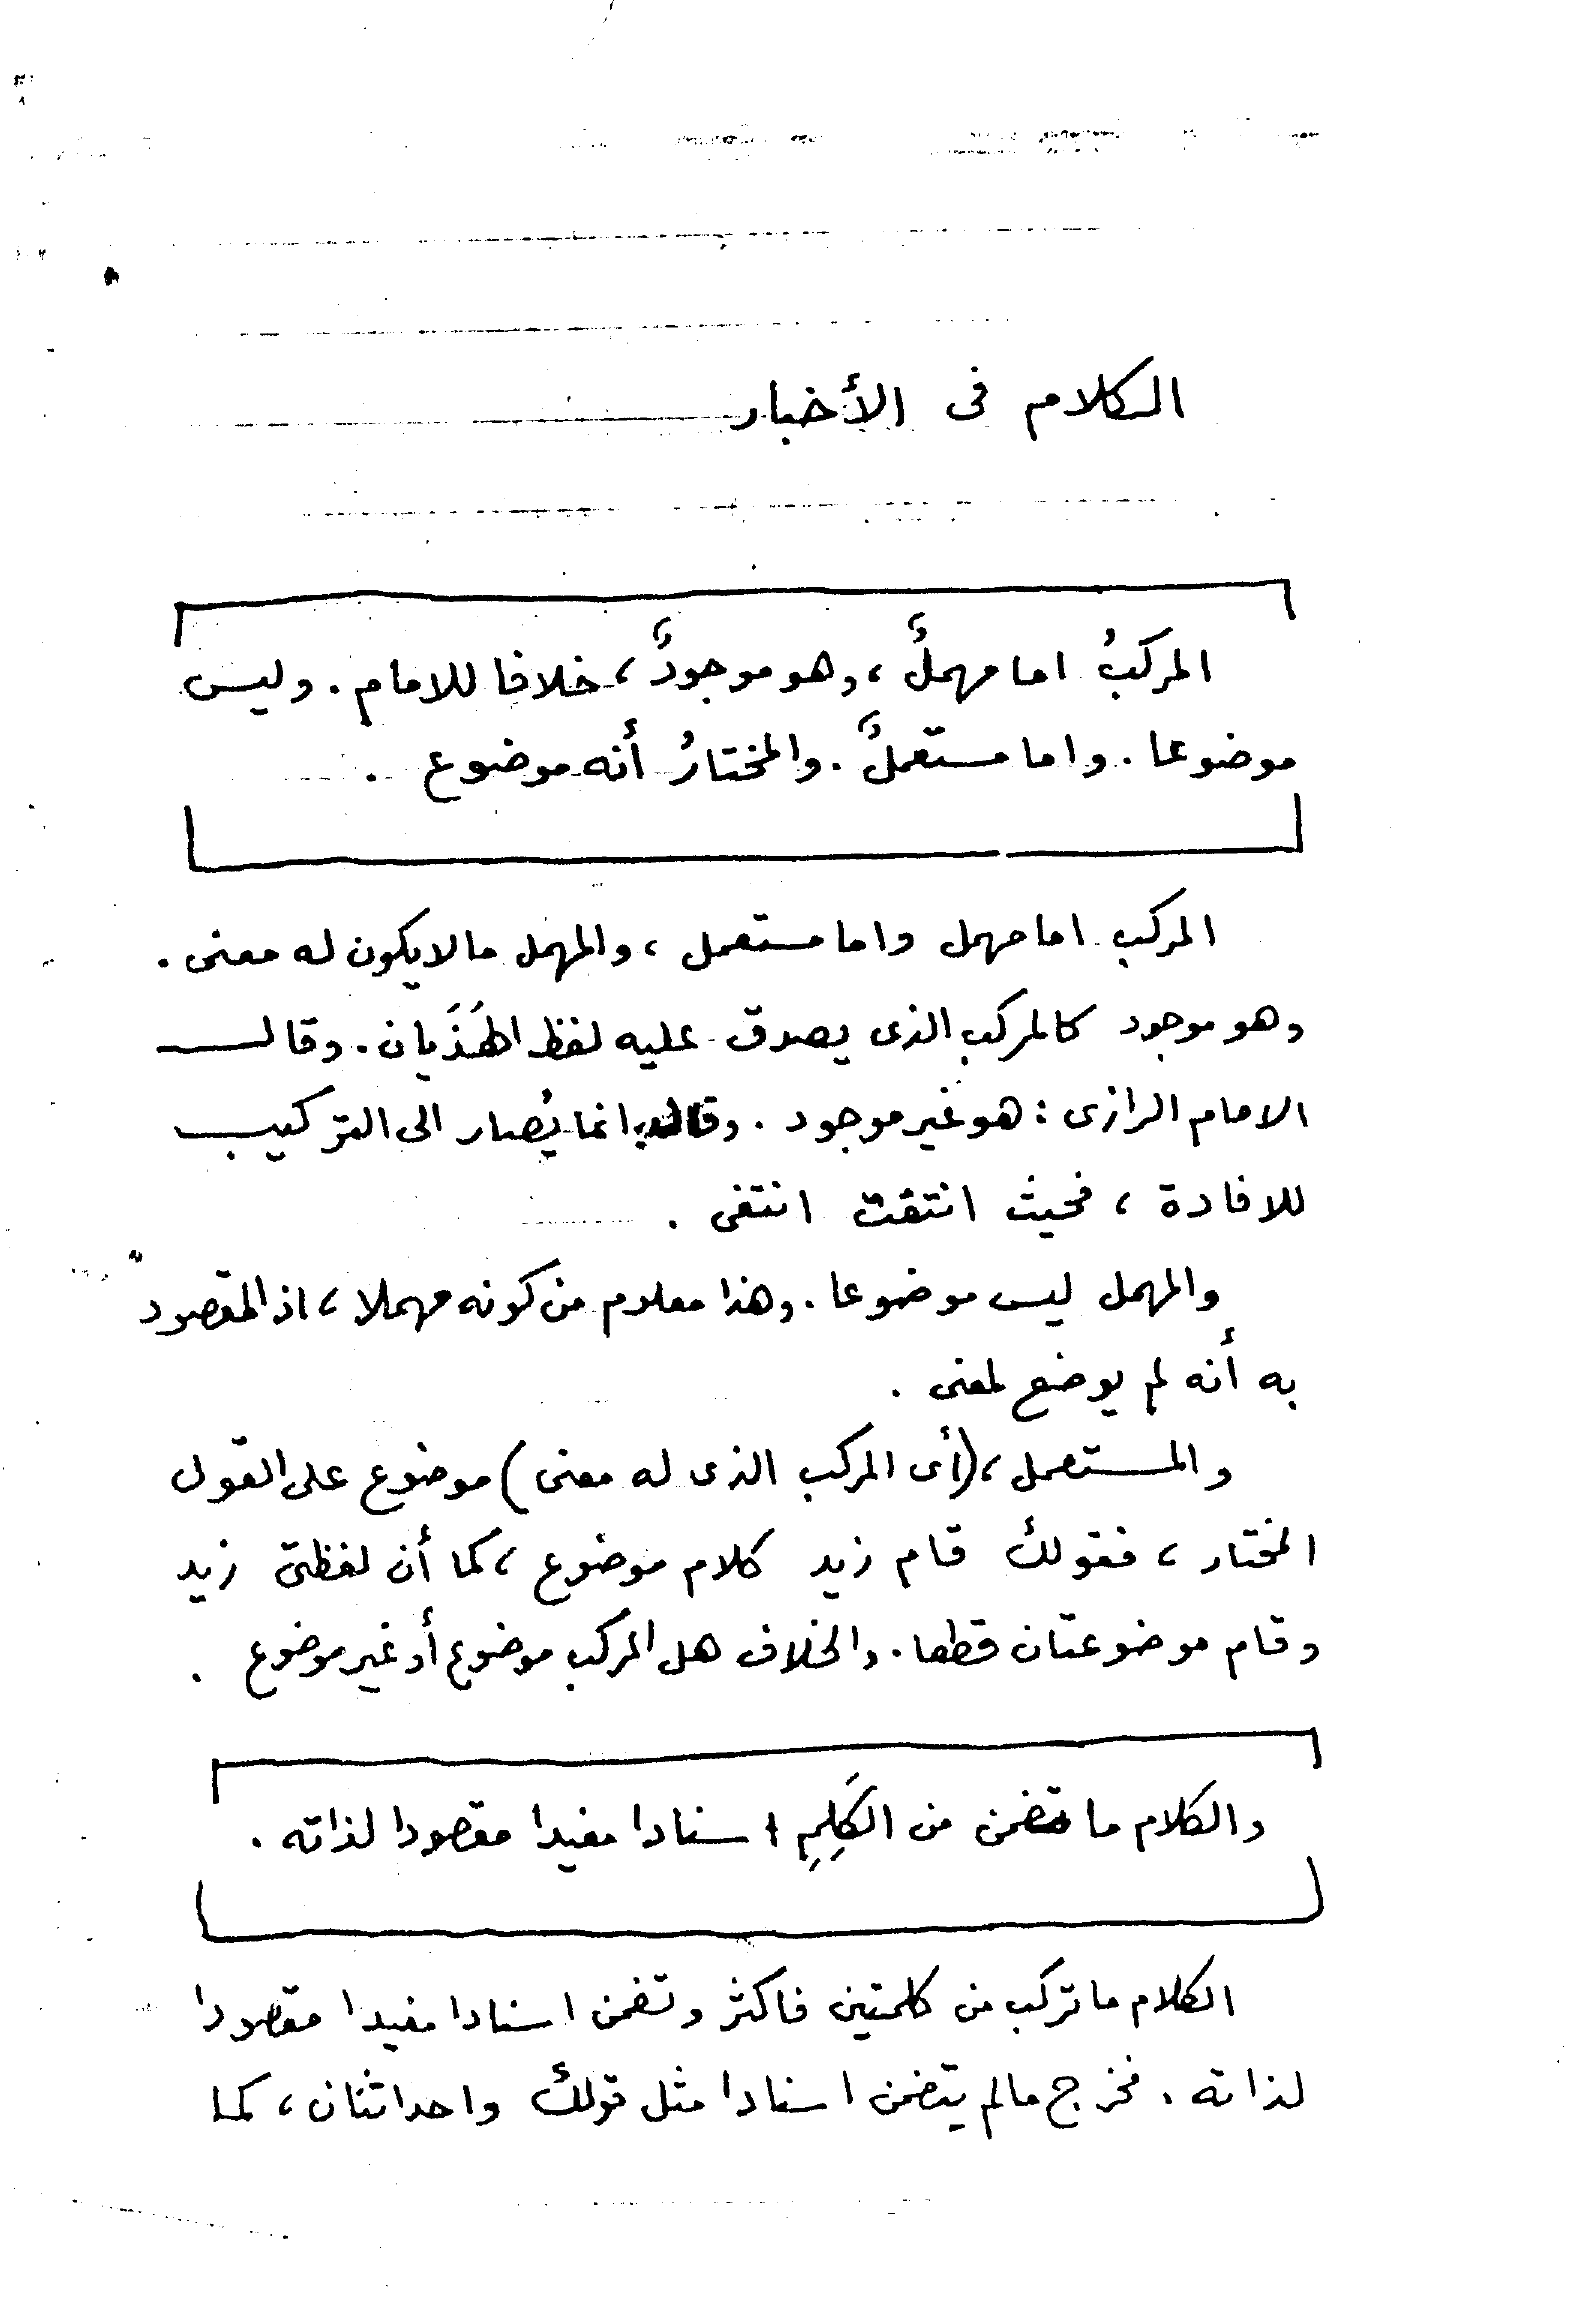 الكلام فى الأخبار
المركبُ اما مهملٌ ، وهو موجودٌ ، خلافا للامام . وليس
موضوعا . واما مستعملٌ . والمختارُ أنه موضوع .
المركب اما مهمل واما مستعمل ، والمهمل ما لا يكون له معنى .
وهو موجود كالمركب الذى يصدق عليه لفظ الهَذَيان . وقال
الامام الرازى : هو غير موجود . وقال انما يُصار الى التركيب
للافادة ، فحيث انتفت انتفى .
والمهمل ليس موضوعا . وهذا معلوم من كونه مهملا ، اذ المقصود
به أنه لم يوضع لمعنى .
والمستعمل ، (أى المركب الذى له معنى) موضوع على القول
المختار ، فقولك قام زيد كلام موضوع ، كما أن لفظتى زيد
وقام موضوعتان قطعا . والخلاف هل المركب موضوع أو غير موضوع .
والكلام ما تضمن من الكَلِمِ اسنادا مفيدا مقصودا لذاته .
الكلام ما تركب من كلمتين فاكثر وتضمن اسنادا مفيدا مقصودا
لذاته . فخرج مالم يتضمن اسنادا مثل قولك واحد اثنان ، كما